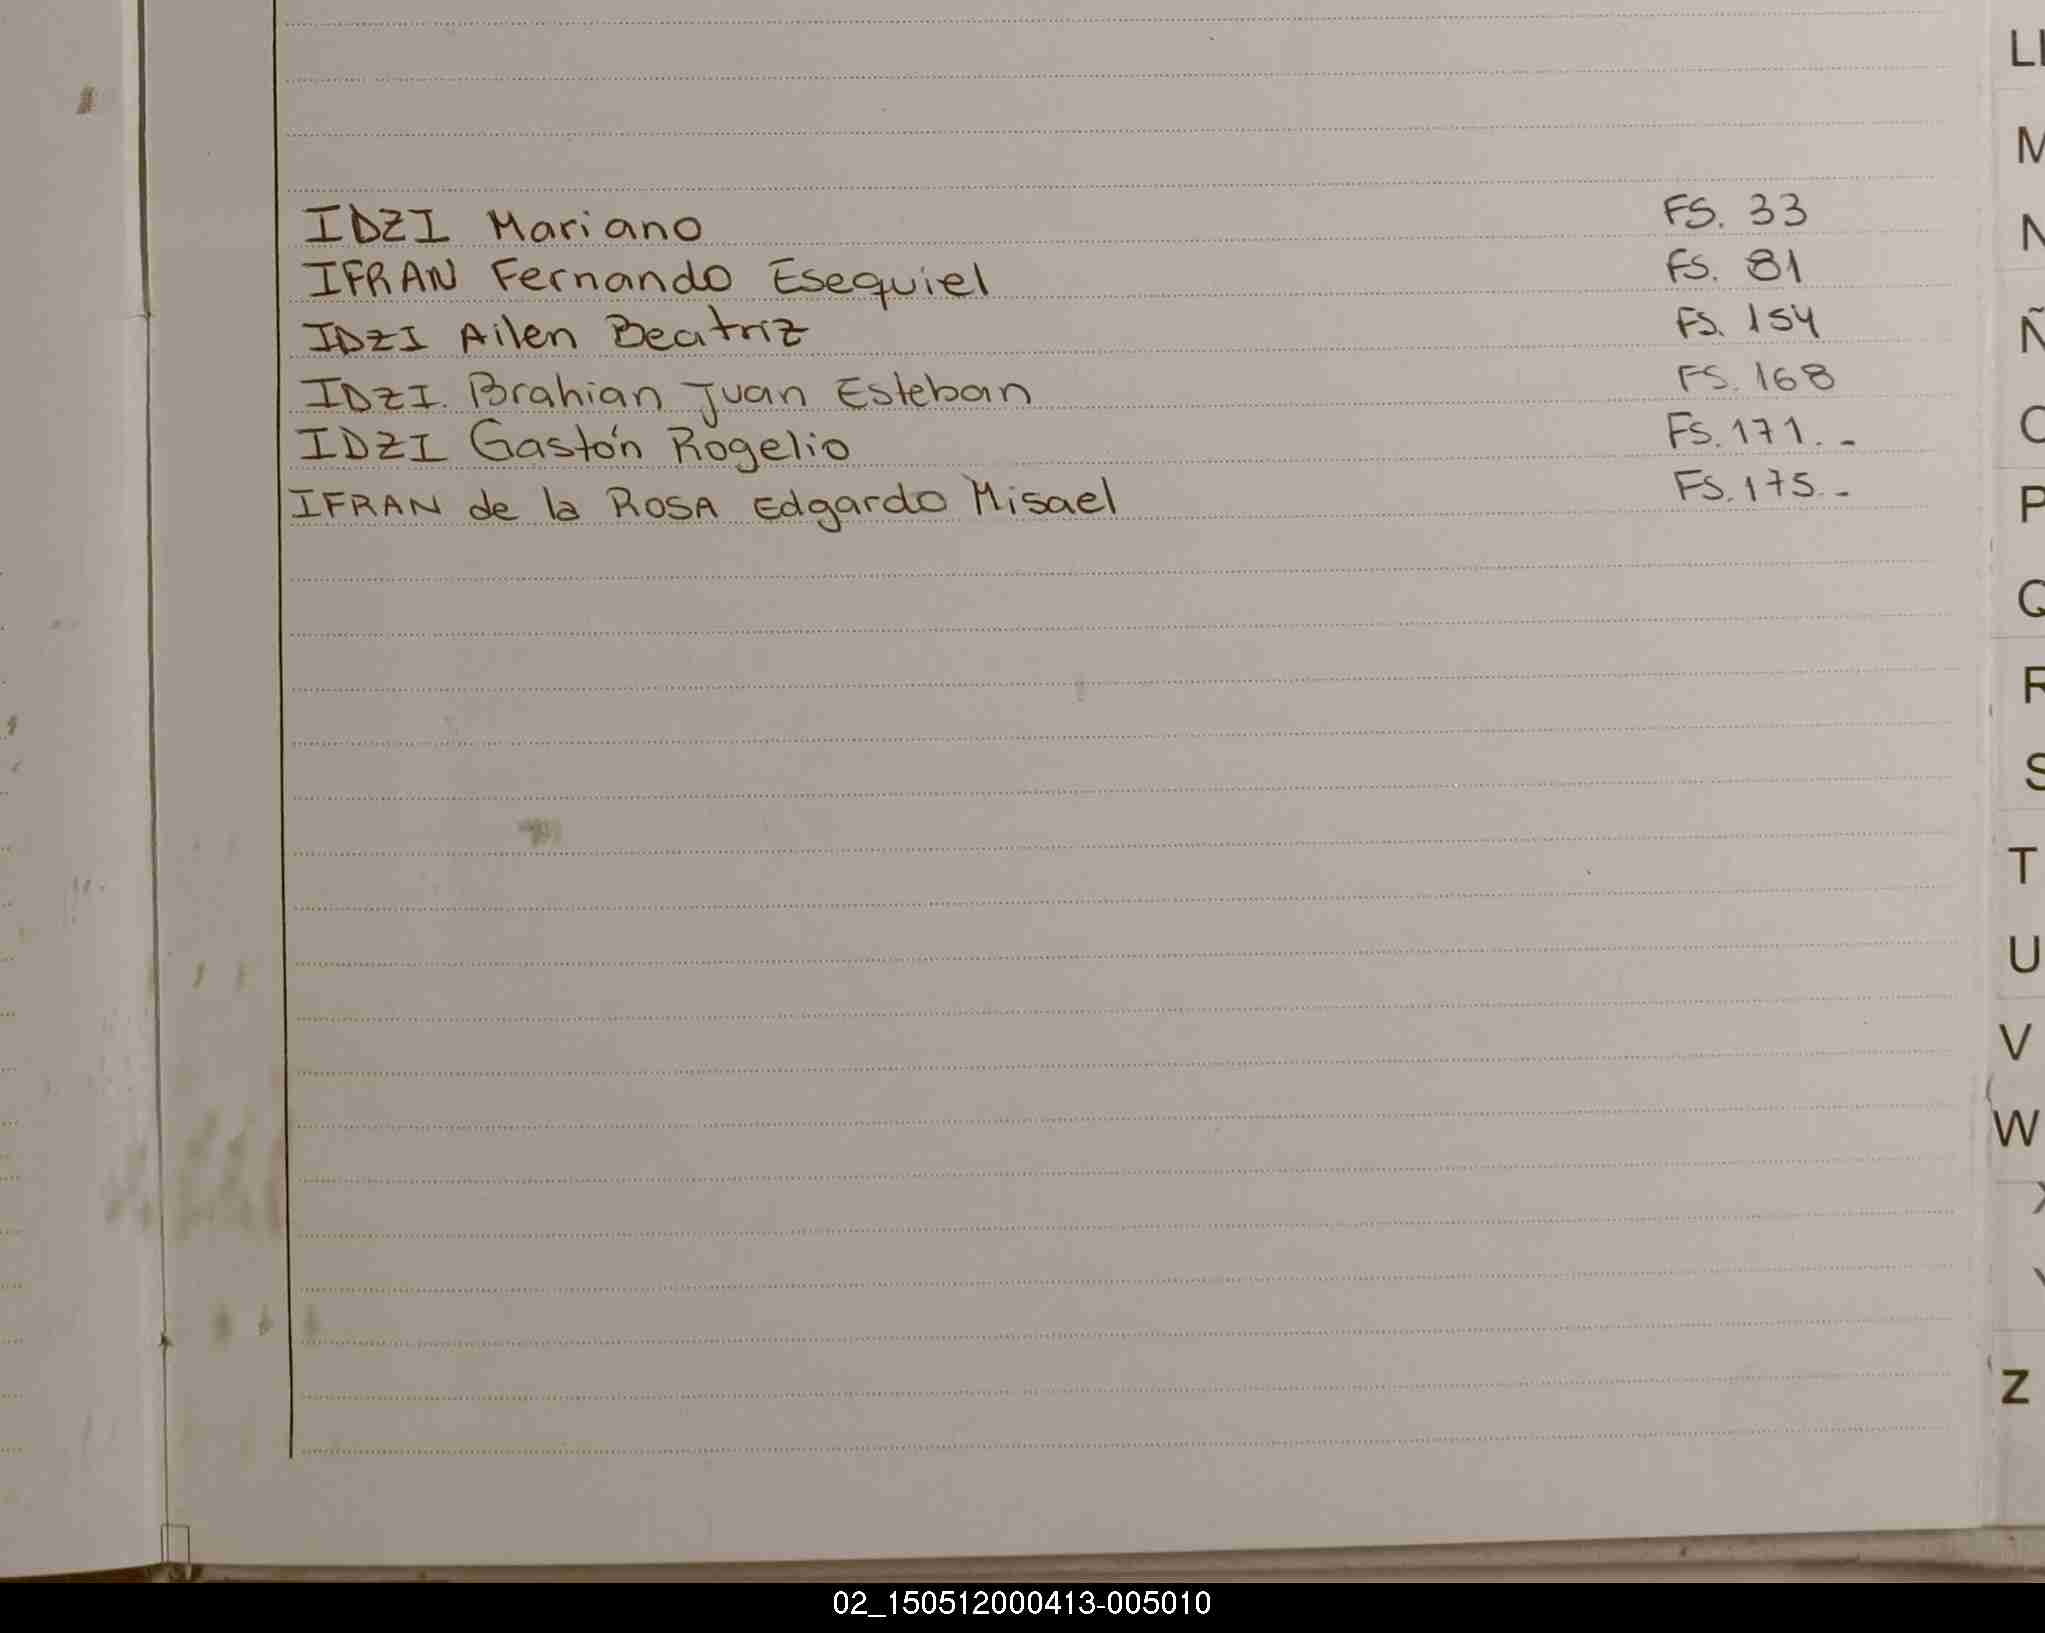 IDZI Mariano FS. 33
IFRAN Fernando Esequiel FS. 81
IDZI Ailen Beatriz FS. 154
IDZI. Brahian Juan Esteban FS. 168
IDZI Gastón Rogelio FS. 171.-
IFRAN de la ROSA Edgardo Misael FS. 175.-
Ll
M
N
Ñ
O
P
Q
R
S
T
U
V
W
X
Y
Z
02_150512000413-005010